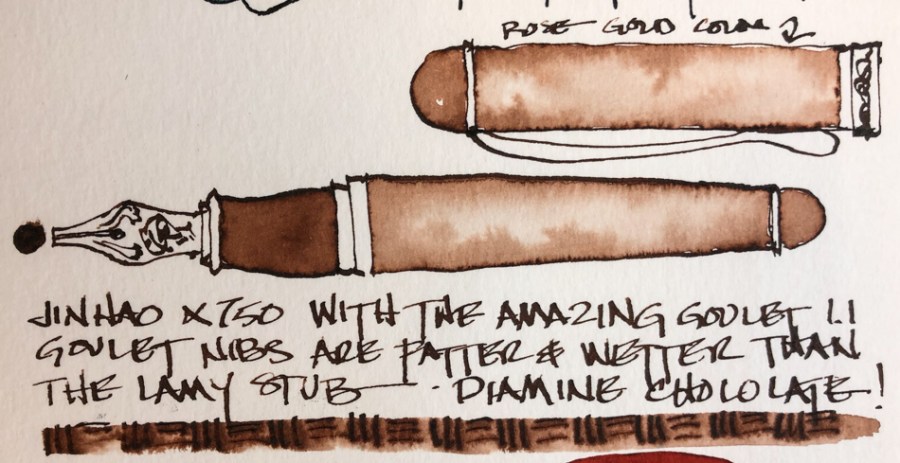 ROSE GOLD COLOR
JINHAO X750 WITH THE AMAZING GOULET 1.1
GOULET NIBS ARE FATTER & WETTER THAN
THE LAMY STUB - DIAMINE CHOLOLATE!